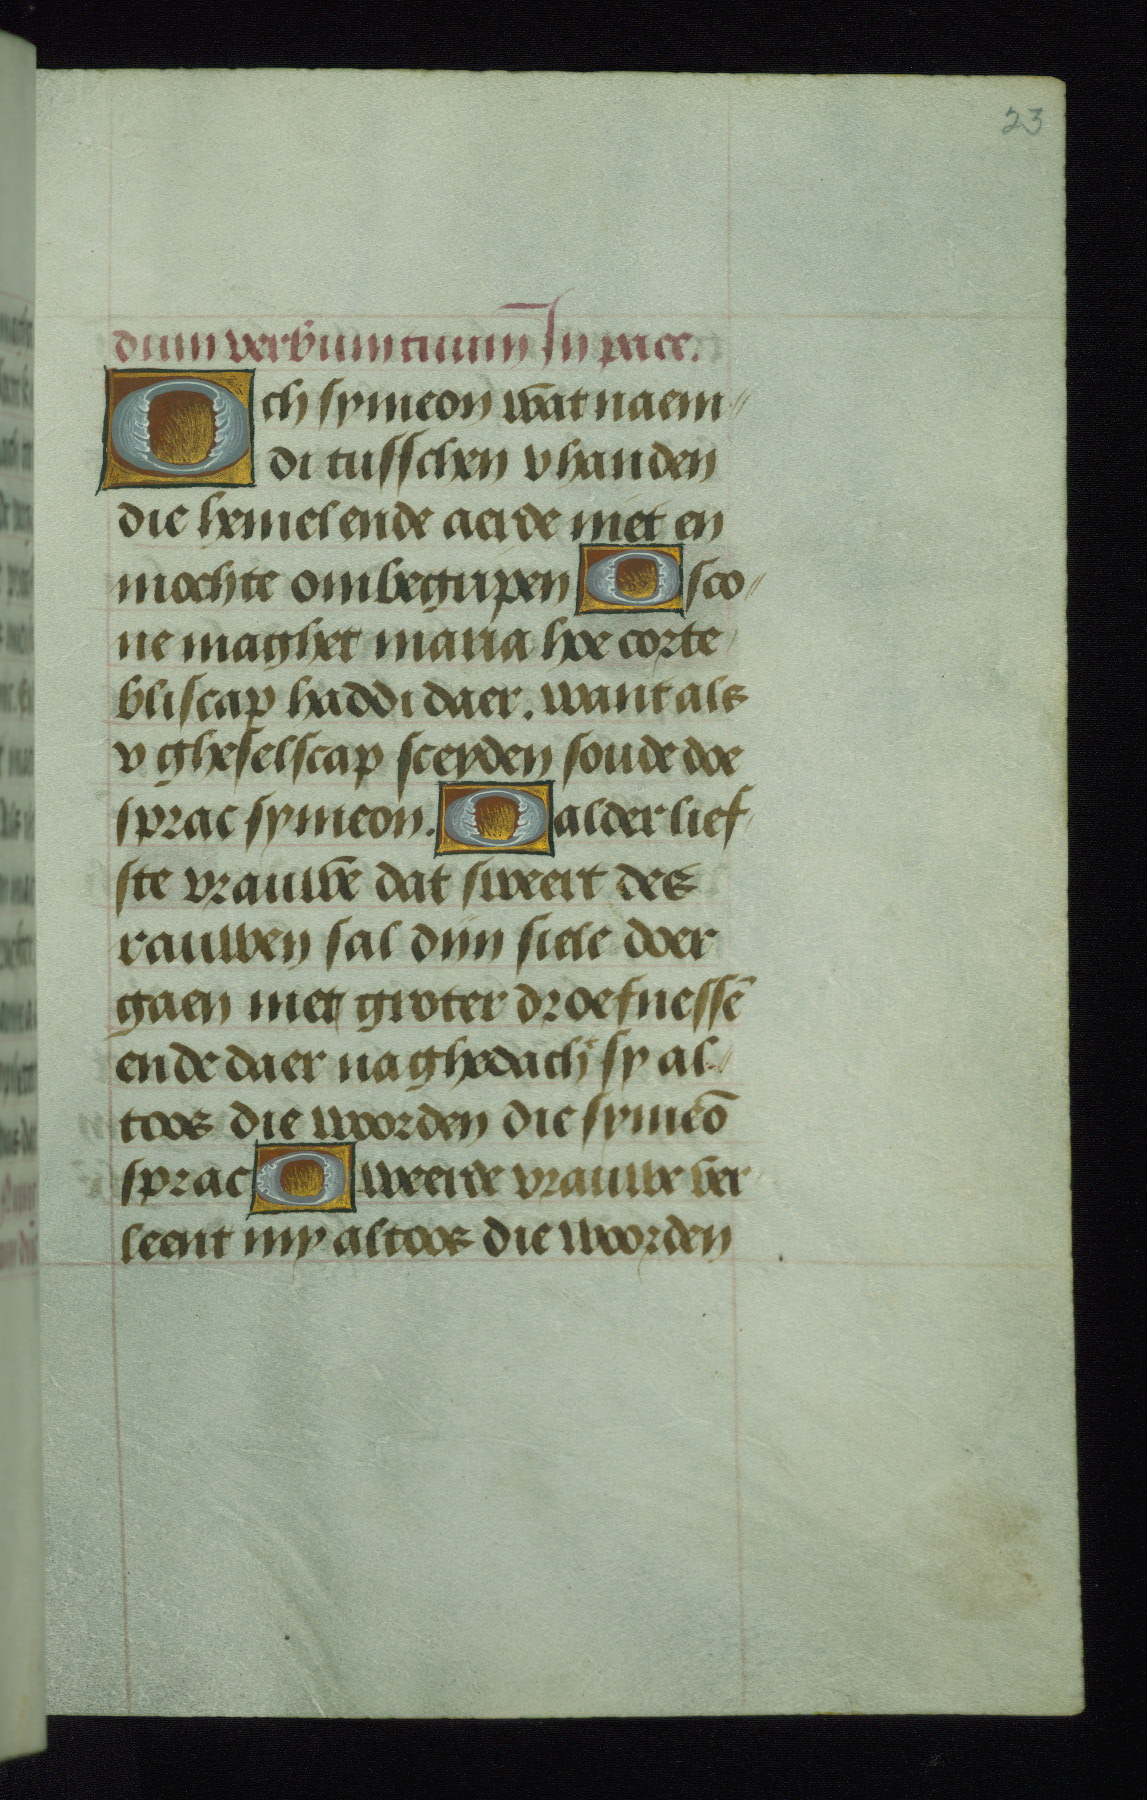 23
dum verbum tuum In pace.
Och symeon wat naem
di tusschen v handen
die hemel ende aerde niet en
mochte ombegripen O sco
ne maghet maria hoe corte
bliscap haddi daer. want als
v gheselscap sceyden soude doe
sprac symeon. O alder lief
ste vrauwē dat sweert des
rauwen sal dijn siele doer
gaen met groter droefnessē
ende daer na ghedacht sy al
toos die woorden die symeō
sprac O weerde vrauwe ver
leent my altoos die woorden